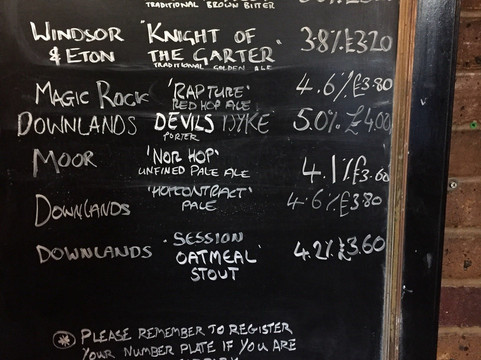 TRADITIONAL BROWN BITTER
WINDSOR & ETON 'KNIGHT OF THE GARTER' 3.8% £3.20
TRADITIONAL GOLDEN ALE
MAGIC ROCK 'RAPTURE' 4.6% £3.80
RED HOP ALE
DOWNLANDS DEVILS DYKE 5.0% £4.00
PORTER
MOOR 'NOR HOP' 4.1% £3.60
UNFINED PALE ALE
DOWNLANDS 'HOPCONTRACT' 4.6% £3.80
PALE
DOWNLANDS 'SESSION 4.2% £3.60
OATMEAL'
STOUT
* PLEASE REMEMBER TO REGISTER
YOUR NUMBER PLATE IF YOU ARE